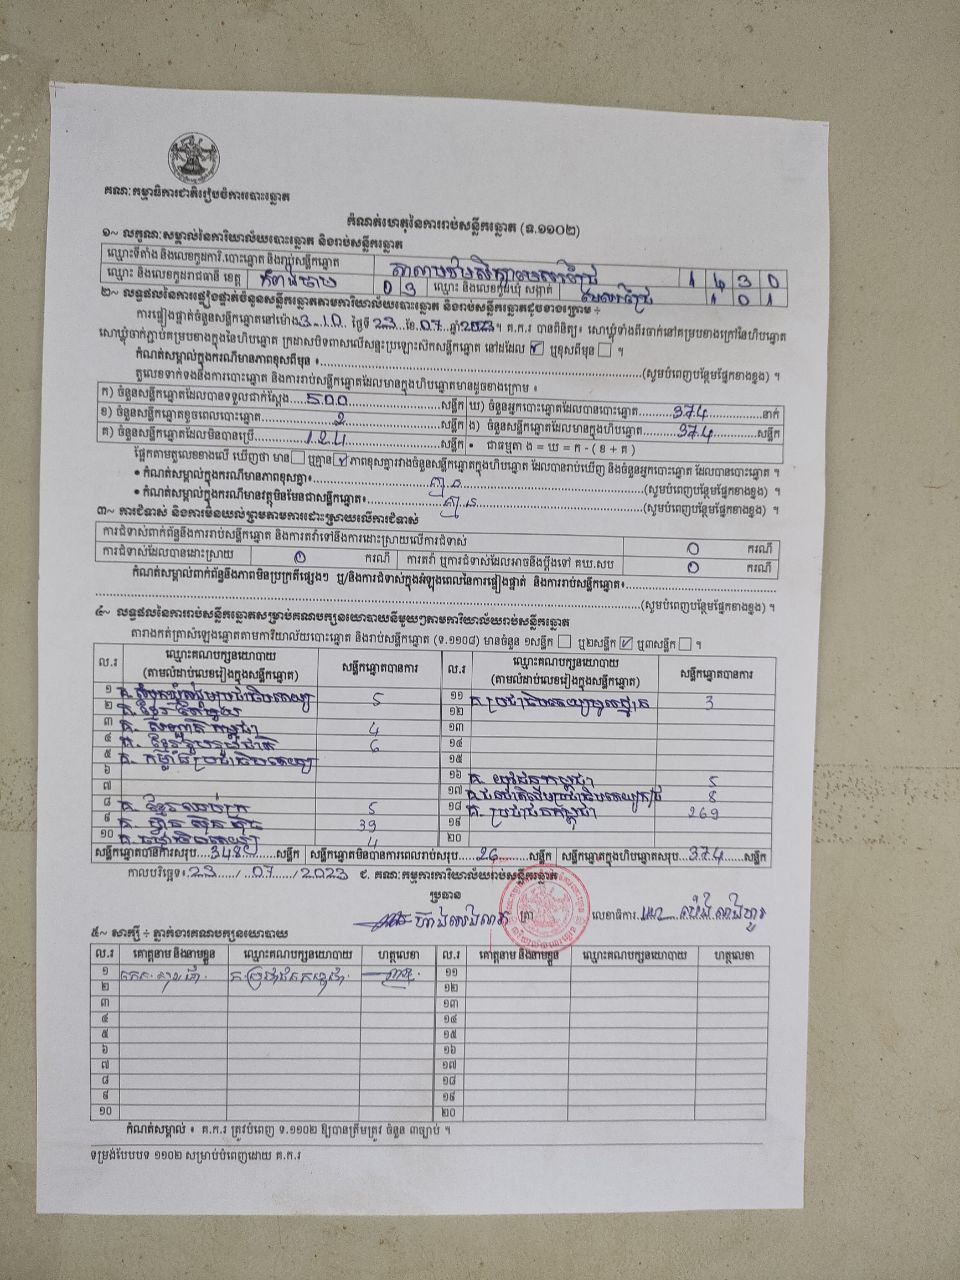 គណៈកម្មាធិការជាតិរៀបចំការបោះឆ្នោត
កំណត់ហេតុនៃការរាប់សន្លឹកឆ្នោត (ទ.១១០២)
១~ លក្ខណៈសម្គាល់នៃការិយាល័យបោះឆ្នោត និងរាប់សន្លឹកឆ្នោត
ឈ្មោះទីតាំង និងលេខកូដការិ.បោះឆ្នោត និងរាប់សន្លឹកឆ្នោត 1 4 3 0
ឈ្មោះ និងលេខកូដរាជធានី ខេត្ត កំពង់ចាម 0 3 ឈ្មោះ និងលេខកូដឃុំ សង្កាត់ 1 0 1
២~ លទ្ធផលនៃការផ្ទៀងផ្ទាត់ចំនួនសន្លឹកឆ្នោតតាមការិយាល័យបោះឆ្នោត និងរាប់សន្លឹកឆ្នោតដូចខាងក្រោម ÷
ការផ្ទៀងផ្ទាត់ចំនួនសន្លឹកឆ្នោតនៅម៉ោង 3:10 ថ្ងៃទី 23 ខែ 07 ឆ្នាំ 2023។ គ.ក.រ បានពិនិត្យ៖ សោឃ្លុំទាំងពីរចាក់នៅគម្របខាងក្រៅនៃហិបឆ្នោត
សោឃ្លុំចាក់ភ្ជាប់គម្របខាងក្នុងនៃហិបឆ្នោត ក្រដាសបិទពាសលើសន្ទះប្រឡោះស៊កសន្លឹកឆ្នោត នៅដដែល ☑ ឬខុសពីមុន ☐ ។
កំណត់សម្គាល់ក្នុងករណីមានភាពខុសពីមុន ៖ (សូមបំពេញបន្ថែមផ្នែកខាងខ្នង) ។
តួលេខទាក់ទងនឹងការបោះឆ្នោត និងការរាប់សន្លឹកឆ្នោតដែលមានក្នុងហិបឆ្នោតមានដូចខាងក្រោម ៖
ក) ចំនួនសន្លឹកឆ្នោតដែលបានទទួលជាក់ស្តែង 500 សន្លឹក ឃ) ចំនួនអ្នកបោះឆ្នោតដែលបានបោះឆ្នោត 374 នាក់
ខ) ចំនួនសន្លឹកឆ្នោតខូចពេលបោះឆ្នោត 2 សន្លឹក ង) ចំនួនសន្លឹកឆ្នោតដែលមានក្នុងហិបឆ្នោត 374 សន្លឹក
គ) ចំនួនសន្លឹកឆ្នោតដែលមិនបានប្រើ 124 សន្លឹក • ជាធម្មតា ង = ឃ = ក - ( ខ + គ )
ផ្អែកតាមតួលេខខាងលើ ឃើញថា មាន ☐ ឬគ្មាន ☑ ភាពខុសគ្នារវាងចំនួនសន្លឹកឆ្នោតក្នុងហិបឆ្នោត ដែលបានរាប់ឃើញ និងចំនួនអ្នកបោះឆ្នោត ដែលបានបោះឆ្នោត ។
• កំណត់សម្គាល់ក្នុងករណីមានភាពខុសគ្នា៖ គ្មាន (សូមបំពេញបន្ថែមផ្នែកខាងខ្នង) ។
• កំណត់សម្គាល់ក្នុងករណីមានវត្ថុមិនមែនជាសន្លឹកឆ្នោត៖ គ្មាន (សូមបំពេញបន្ថែមផ្នែកខាងខ្នង) ។
៣~ ការជំទាស់ និងការមិនយល់ព្រមតាមការដោះស្រាយលើការជំទាស់
ការជំទាស់ពាក់ព័ន្ធនឹងការរាប់សន្លឹកឆ្នោត និងការតវ៉ាទៅនឹងការដោះស្រាយលើការជំទាស់ 0 ករណី
ការជំទាស់ដែលបានដោះស្រាយ 0 ករណី ការតវ៉ា ឬការជំទាស់ដែលអាចនឹងប្តឹងទៅ គឃ.សប 0 ករណី
កំណត់សម្គាល់ពាក់ព័ន្ធនឹងភាពមិនប្រក្រតីផ្សេងៗ ឬ/និងការជំទាស់ក្នុងអំឡុងពេលនៃការផ្ទៀងផ្ទាត់ និងការរាប់សន្លឹកឆ្នោត៖
(សូមបំពេញបន្ថែមផ្នែកខាងខ្នង) ។
៤~ លទ្ធផលនៃការរាប់សន្លឹកឆ្នោតសម្រាប់គណបក្សនយោបាយនីមួយៗតាមការិយាល័យរាប់សន្លឹកឆ្នោត
តារាងកត់ត្រាសំឡេងឆ្នោតតាមការិយាល័យបោះឆ្នោត និងរាប់សន្លឹកឆ្នោត (ទ.១១០៨) មានចំនួន ១សន្លឹក ☐ ឬ២សន្លឹក ☑ ឬ៣សន្លឹក ☐ ។
ល.រ ឈ្មោះគណបក្សនយោបាយ (តាមលំដាប់លេខរៀងក្នុងសន្លឹកឆ្នោត) សន្លឹកឆ្នោតបានការ ល.រ ឈ្មោះគណបក្សនយោបាយ (តាមលំដាប់លេខរៀងក្នុងសន្លឹកឆ្នោត) សន្លឹកឆ្នោតបានការ
១ គ. សំបុកឃ្មុំសង្គមប្រជាធិបតេយ្យ 5 ១១ គ. ប្រជាធិបតេយ្យមូលដ្ឋាន 3
២ គ. ខ្មែរតែមួយ ១២
៣ 4 ១៣
៤ គ. ខ្មែររួបរួមជាតិ 6 ១៤
៥ គ. កម្លាំងប្រជាធិបតេយ្យ ១៥
៦ ១៦ គ. យុវជនកម្ពុជា 5
៧ ១៧ 8
៨ គ. ខ្មែរឈប់ក្រ 5 ១៨ គ. ប្រជាជនកម្ពុជា 269
៩ គ. ហ្វ៊ុនស៊ិនប៉ិច 39 ១៩
១០ 4 ២០
សន្លឹកឆ្នោតបានការសរុប 348 សន្លឹក សន្លឹកឆ្នោតមិនបានការពេលរាប់សរុប 26 សន្លឹក សន្លឹកឆ្នោតក្នុងហិបឆ្នោតសរុប 374 សន្លឹក
កាលបរិច្ឆេទ៖ 23 / 07 / 2023 ជ. គណៈកម្មការការិយាល័យរាប់សន្លឹកឆ្នោត
ប្រធាន
ត្រា លេខាធិការ
៥~ សាក្សី ÷ ភ្នាក់ងារគណបក្សនយោបាយ
ល.រ គោត្តនាម និងនាមខ្លួន ឈ្មោះគណបក្សនយោបាយ ហត្ថលេខា ល.រ គោត្តនាម និងនាមខ្លួន ឈ្មោះគណបក្សនយោបាយ ហត្ថលេខា
១ គ. ប្រជាជនកម្ពុជា ១១
២ ១២
៣ ១៣
៤ ១៤
៥ ១៥
៦ ១៦
៧ ១៧
៨ ១៨
៩ ១៩
១០ ២០
កំណត់សម្គាល់ ៖ គ.ក.រ ត្រូវបំពេញ ទ.១១០២ ឱ្យបានត្រឹមត្រូវ ចំនួន ៣ច្បាប់ ។
ទម្រង់បែបបទ ១១០២ សម្រាប់បំពេញដោយ គ.ក.រ